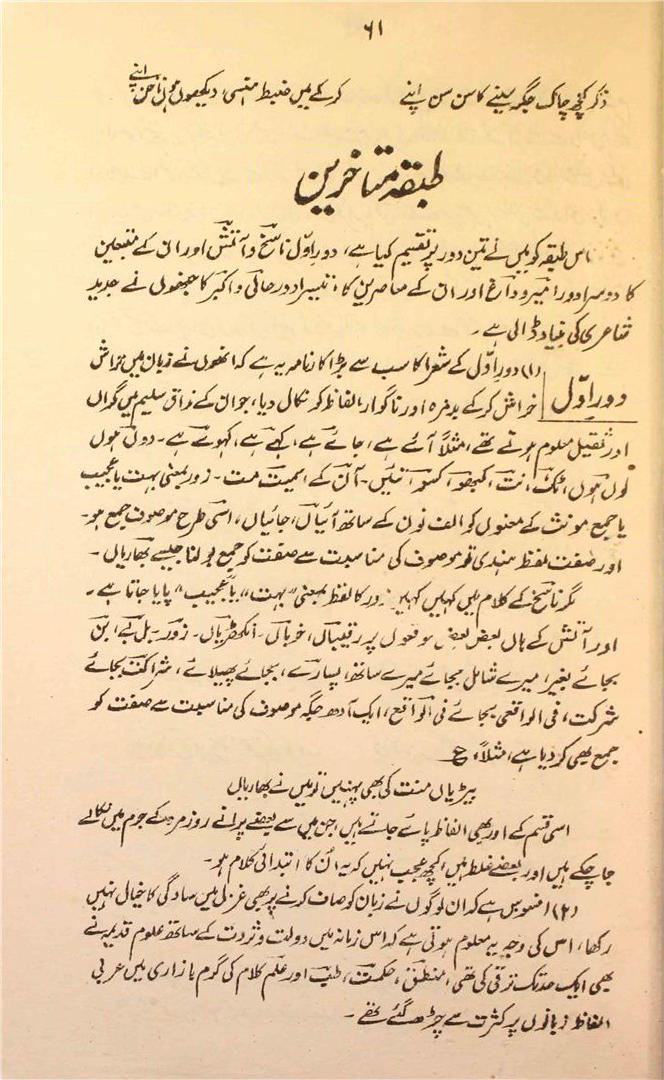 ۶۱
ذکر کچھ چاک جگر سینے کا سن سن اپنے کر کے میں ضبط ہنسی، دیکھوں ہوں ناخن اپنے
طبقہ متاخرین
اس طبقہ کو میں نے تین دور پر تقسیم کیا ہے، دور اوّل ناسخ و آتش اور ان کے متبعین
کا دوسرا دور امیر و داغ اور ان کے معاصرین کا، تیسرا دور حالی و اکبر کا جنھوں نے جدید
شاعری کی بنیاد ڈالی ہے۔
دور اوّل
(۱) دور اوّل کے شعرا کا سب سے بڑا کارنامہ یہ ہے کہ انھوں نے زبان میں تراش
خراش کر کے بدمزہ اور ناگوار الفاظ کو نکال دیا، جو ان کے مذاق سلیم میں گراں
اور ثقیل معلوم ہوتے تھے، مثلاً آئے ہے، جائے ہے، کہے ہے، کہوے ہے۔ دوں ہوں
لوں ہوں، ٹک، انت، کبھو، کسو، تئیں۔ ان کے، مت۔ زور بمعنی بہت یا عجیب
یا جمع مونث کے معنوں کو الف نون کے ساتھ آئیاں، جائیاں، اسی طرح موصوف جمع ہو۔
اور صفت لفظ ہندی تو موصوف کی مناسبت سے صفت کو جمع بولنا جیسے بھاریاں۔
مگر ناسخ کے کلام میں کہیں کہیں زور کا لفظ بمعنی "بہت" یا "عجیب" پایا جاتا ہے۔
اور آتش کے ہاں بعض بعض موقعوں پر رقیباں، خوباں۔ انکھڑیاں۔ زور۔ بل بے، بن
بجائے بغیر، میرے شامل بجائے میرے ساتھ، پسارے، بجائے پھیلائے، شراکت بجائے
شرکت، فی الواقعی بجائے فی الواقع، ایک آدھ جگہ موصوف کی مناسبت سے صفت کو
جمع بھی کر دیا ہے، مثلاً، ع
بیڑیاں منت کی بھی پہنیں تو میں نے بھاریاں
اسی قسم کے اور بھی الفاظ پائے جاتے ہیں، جن میں سے بعضے پرانے روزمرہ کے جرم میں نکالے
جا چکے ہیں اور بعضے غلط ہیں، کچھ عجب نہیں کہ یہ ان کا ابتدائی کلام ہو۔
(۲) افسوس ہے کہ ان لوگوں نے زبان کو صاف کرنے پر بھی غزل میں سادگی کا خیال نہیں
رکھا، اس کی وجہ یہ معلوم ہوتی ہے کہ اس زمانہ میں دولت و ثروت کے ساتھ علوم قدیمہ نے
بھی ایک حد تک ترقی کی تھی، منطق، حکمت، طب اور علم کلام کی گرم بازاری میں عربی
الفاظ زبانوں پر کثرت سے چڑھ گئے تھے۔